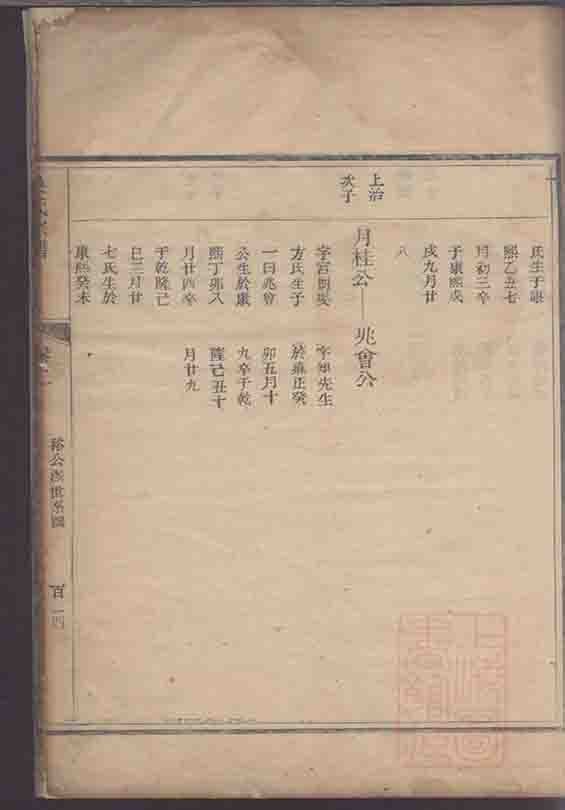 氏生于康
熙乙丑七
月初三卒
于康熙戌
戌九月廿
八
上治
次子
月桂公—兆會公
方氏生子
一曰兆會
公生於康
熙丁卯八
月廿四卒
于乾隆己
巳三月廿
七氏生於
康熙癸未
字 先生
於雍正癸
卯五月十
九卒于乾
隆己丑十
月廿九
裕公 世系圖
百一四
上海圖書館藏